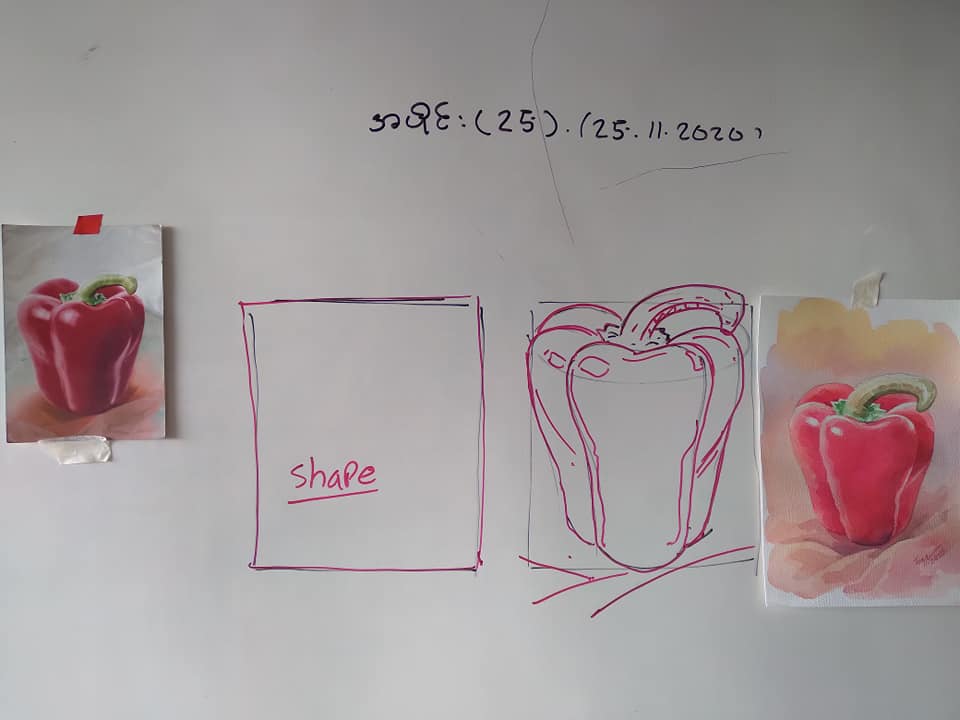 အပိုင်း (25). (25.11.2020)
shape